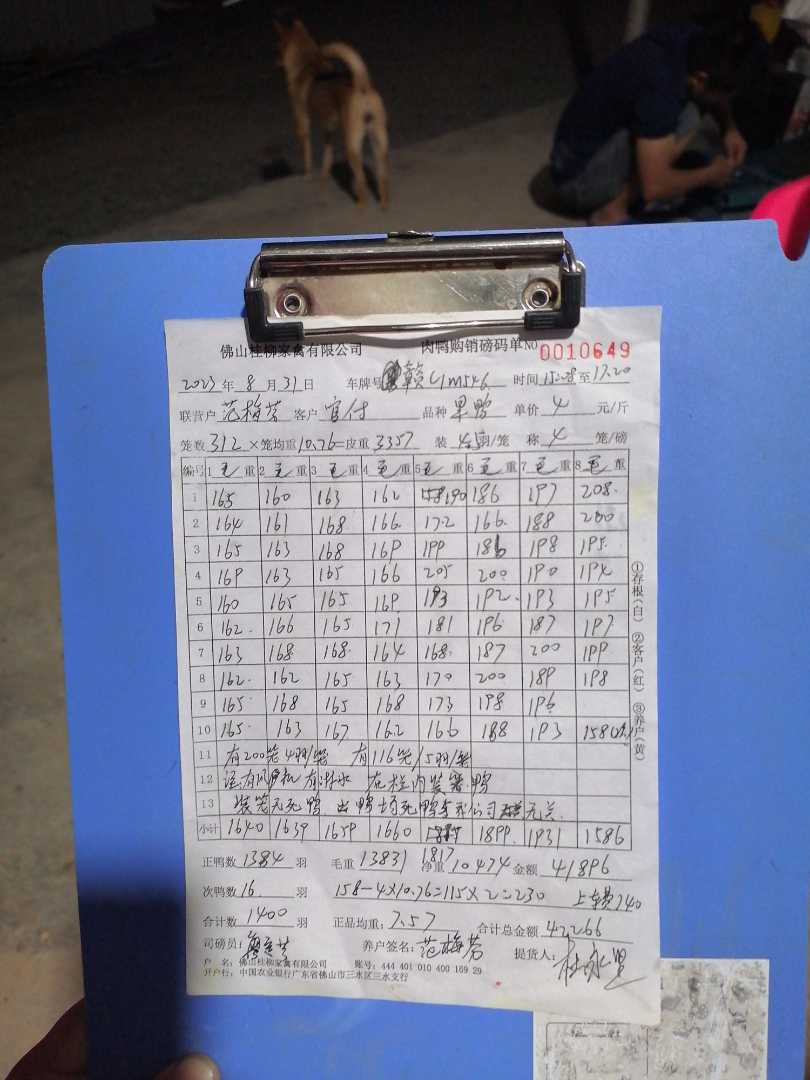 佛山桂柳家禽有限公司 肉鸭购销磅码单NO 0010649
2023年8月31日 车牌号 赣C1M546 时间 至17.20
联营户 范梅芳 客户 官付 品种 果鸭 单价 4 元/斤
笼数312×笼均重10.76=皮重3357 装 羽/笼 称 4 笼/磅
编号 1毛重 2毛重 3毛重 4毛重 5毛重 6毛重 7毛重 8毛重
1 165 160 163 162 190 186 197 208
2 164 161 168 166 172 166 188 200
3 165 163 168 169 199 186 198 195
4 169 163 165 166 205 200 190 194
5 160 165 165 169 193 192 193 195
6 162 166 165 171 181 196 187 197
7 163 168 168 164 168 187 200 199
8 162 162 165 163 170 200 189 198
9 165 168 165 168 173 198 196
10 165 163 167 162 166 188 193 158
11 有200笼4羽/笼 有116笼/5羽/笼
12 有风 有冲水 在栏内装 鸭
13 装笼无死鸭 出鸭 死鸭与我公司无关
小计 1640 1639 1659 1660 1899 1931 1586
1817
正鸭数1384羽 毛重13831 净重10474 金额41896
次鸭数16羽 158-4×10.76=115×2=230 上车费140
合计数1400羽 正品均重:7.57 合计总金额42266
司磅员: 养户签名:范梅芳 提货人:
户 名:佛山桂柳家禽有限公司 账号:444 401 010 400 169 29
开户行:中国农业银行广东省佛山市三水区三水支行
①存根(白) ②客户(红) ③养户(黄)